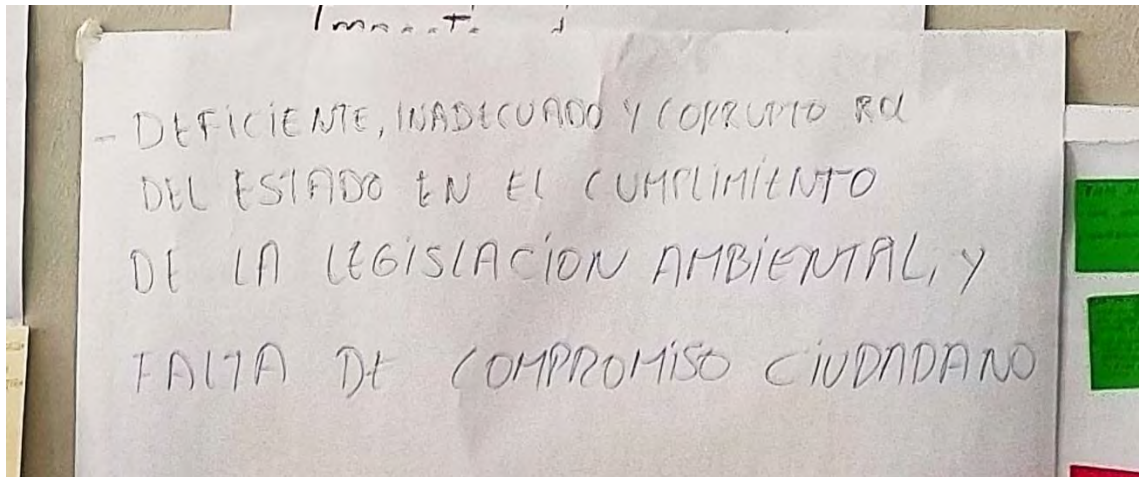 - DEFICIENTE, INADECUADO Y CORRUPTO ROL
DEL ESTADO EN EL CUMPLIMIENTO
DE LA LEGISLACION AMBIENTAL, Y
FALTA DE COMPROMISO CIUDADANO